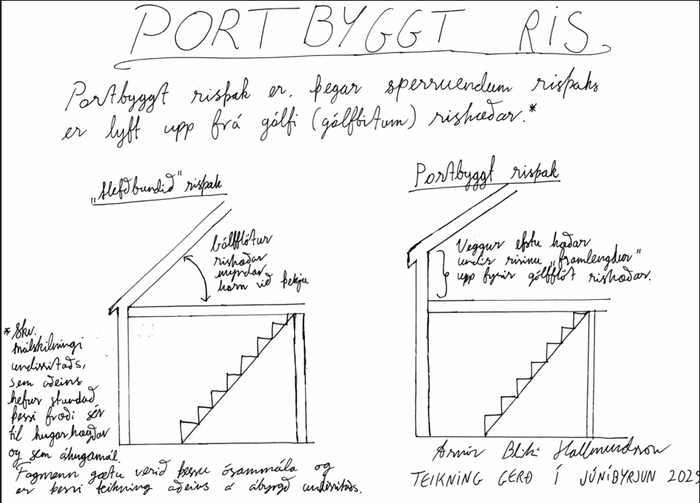 PORTBYGGT RIS.
Portbyggt risþak er, þegar sperruendum risþaks
er lyft upp frá gólfi (gólfbitum) rishæðar.*
„Hefðbundið" risþak
Gólfflötur
rishæðar
myndar
horn við þekju
Portbyggt risþak
Veggur efstu hæðar
undir risinu „framlengdur"
upp fyrir gólfflöt rishæðar.
* Skv.
málskilningi
undirritaðs,
sem aðeins
hefur stundað
þessi fræði sér
til hugarhægðar
og sem áhugamál.
Fagmenn gætu verið þessu ósammála og
er þessi teikning aðeins á ábyrgð undirritaðs.
Arnór Bliki Hallmundsson
TEIKNING GERÐ Í JÚNÍBYRJUN 2025